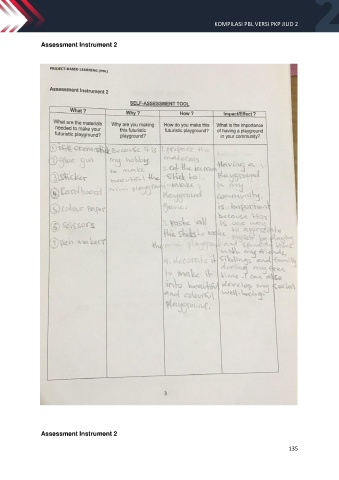 KOMPILASI PBL VERSI PKP JILID 2
2
Assessment Instrument 2
PROJECT-BASED LEARNING (PBL)
Assessment Instrument 2
SELF-ASSESSMENT TOOL
What ? Why ? How ? Impact/Effect ?
What are the materials needed to make your futuristic playground?
Why are you making this futuristic playground?
How do you make this futuristic playground?
What is the importance of having a playground in your community?
① stick
② glue gun
③ Sticker
④ Cardboard
⑤ colour paper
⑥ scissors
⑦ Pen marker
because it is
my hobby
to make
beautiful
mini playground
1. prepare the
materials
2. cut the ice cream
stick to
make a
playground
3. Paste all
the stick to make
the mini playground
4. decorate it
to make it
into beautiful
and colourful
playground.
Having a
Playground
in my
community
is important
because this
is one way
to
myself by playing
and spending time
with my friends,
siblings and family
during my free
time. I can also
develop my social
well-being
3
Assessment Instrument 2
135